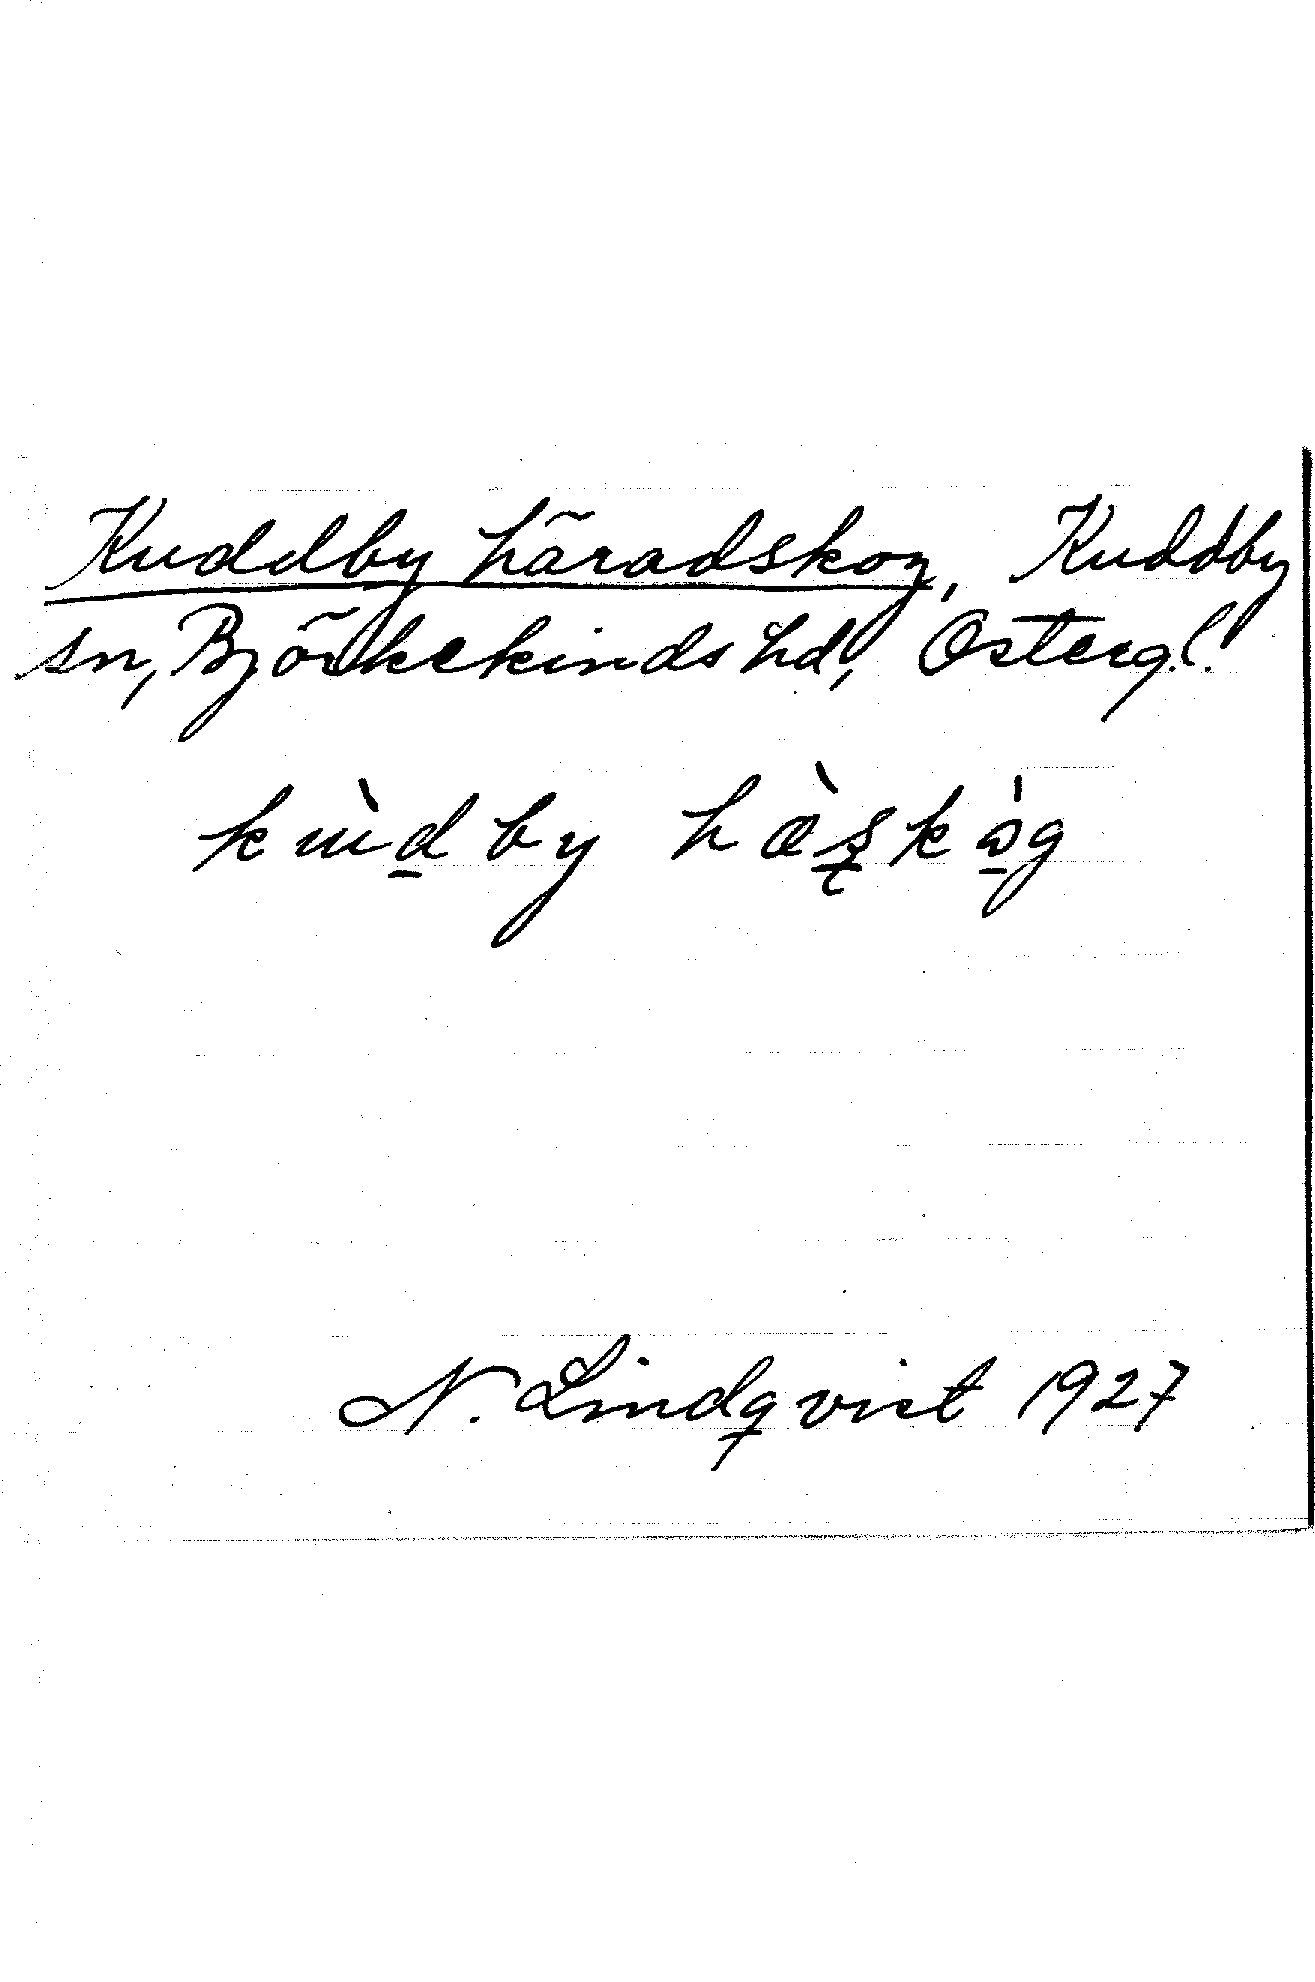 Kuddby häradskog, Kuddby
sn, Björkekinds hd, Österg.l.
kɯ̀d̲by hæ̀ʂkɔ̲̍g
N. Lindqvist 1927